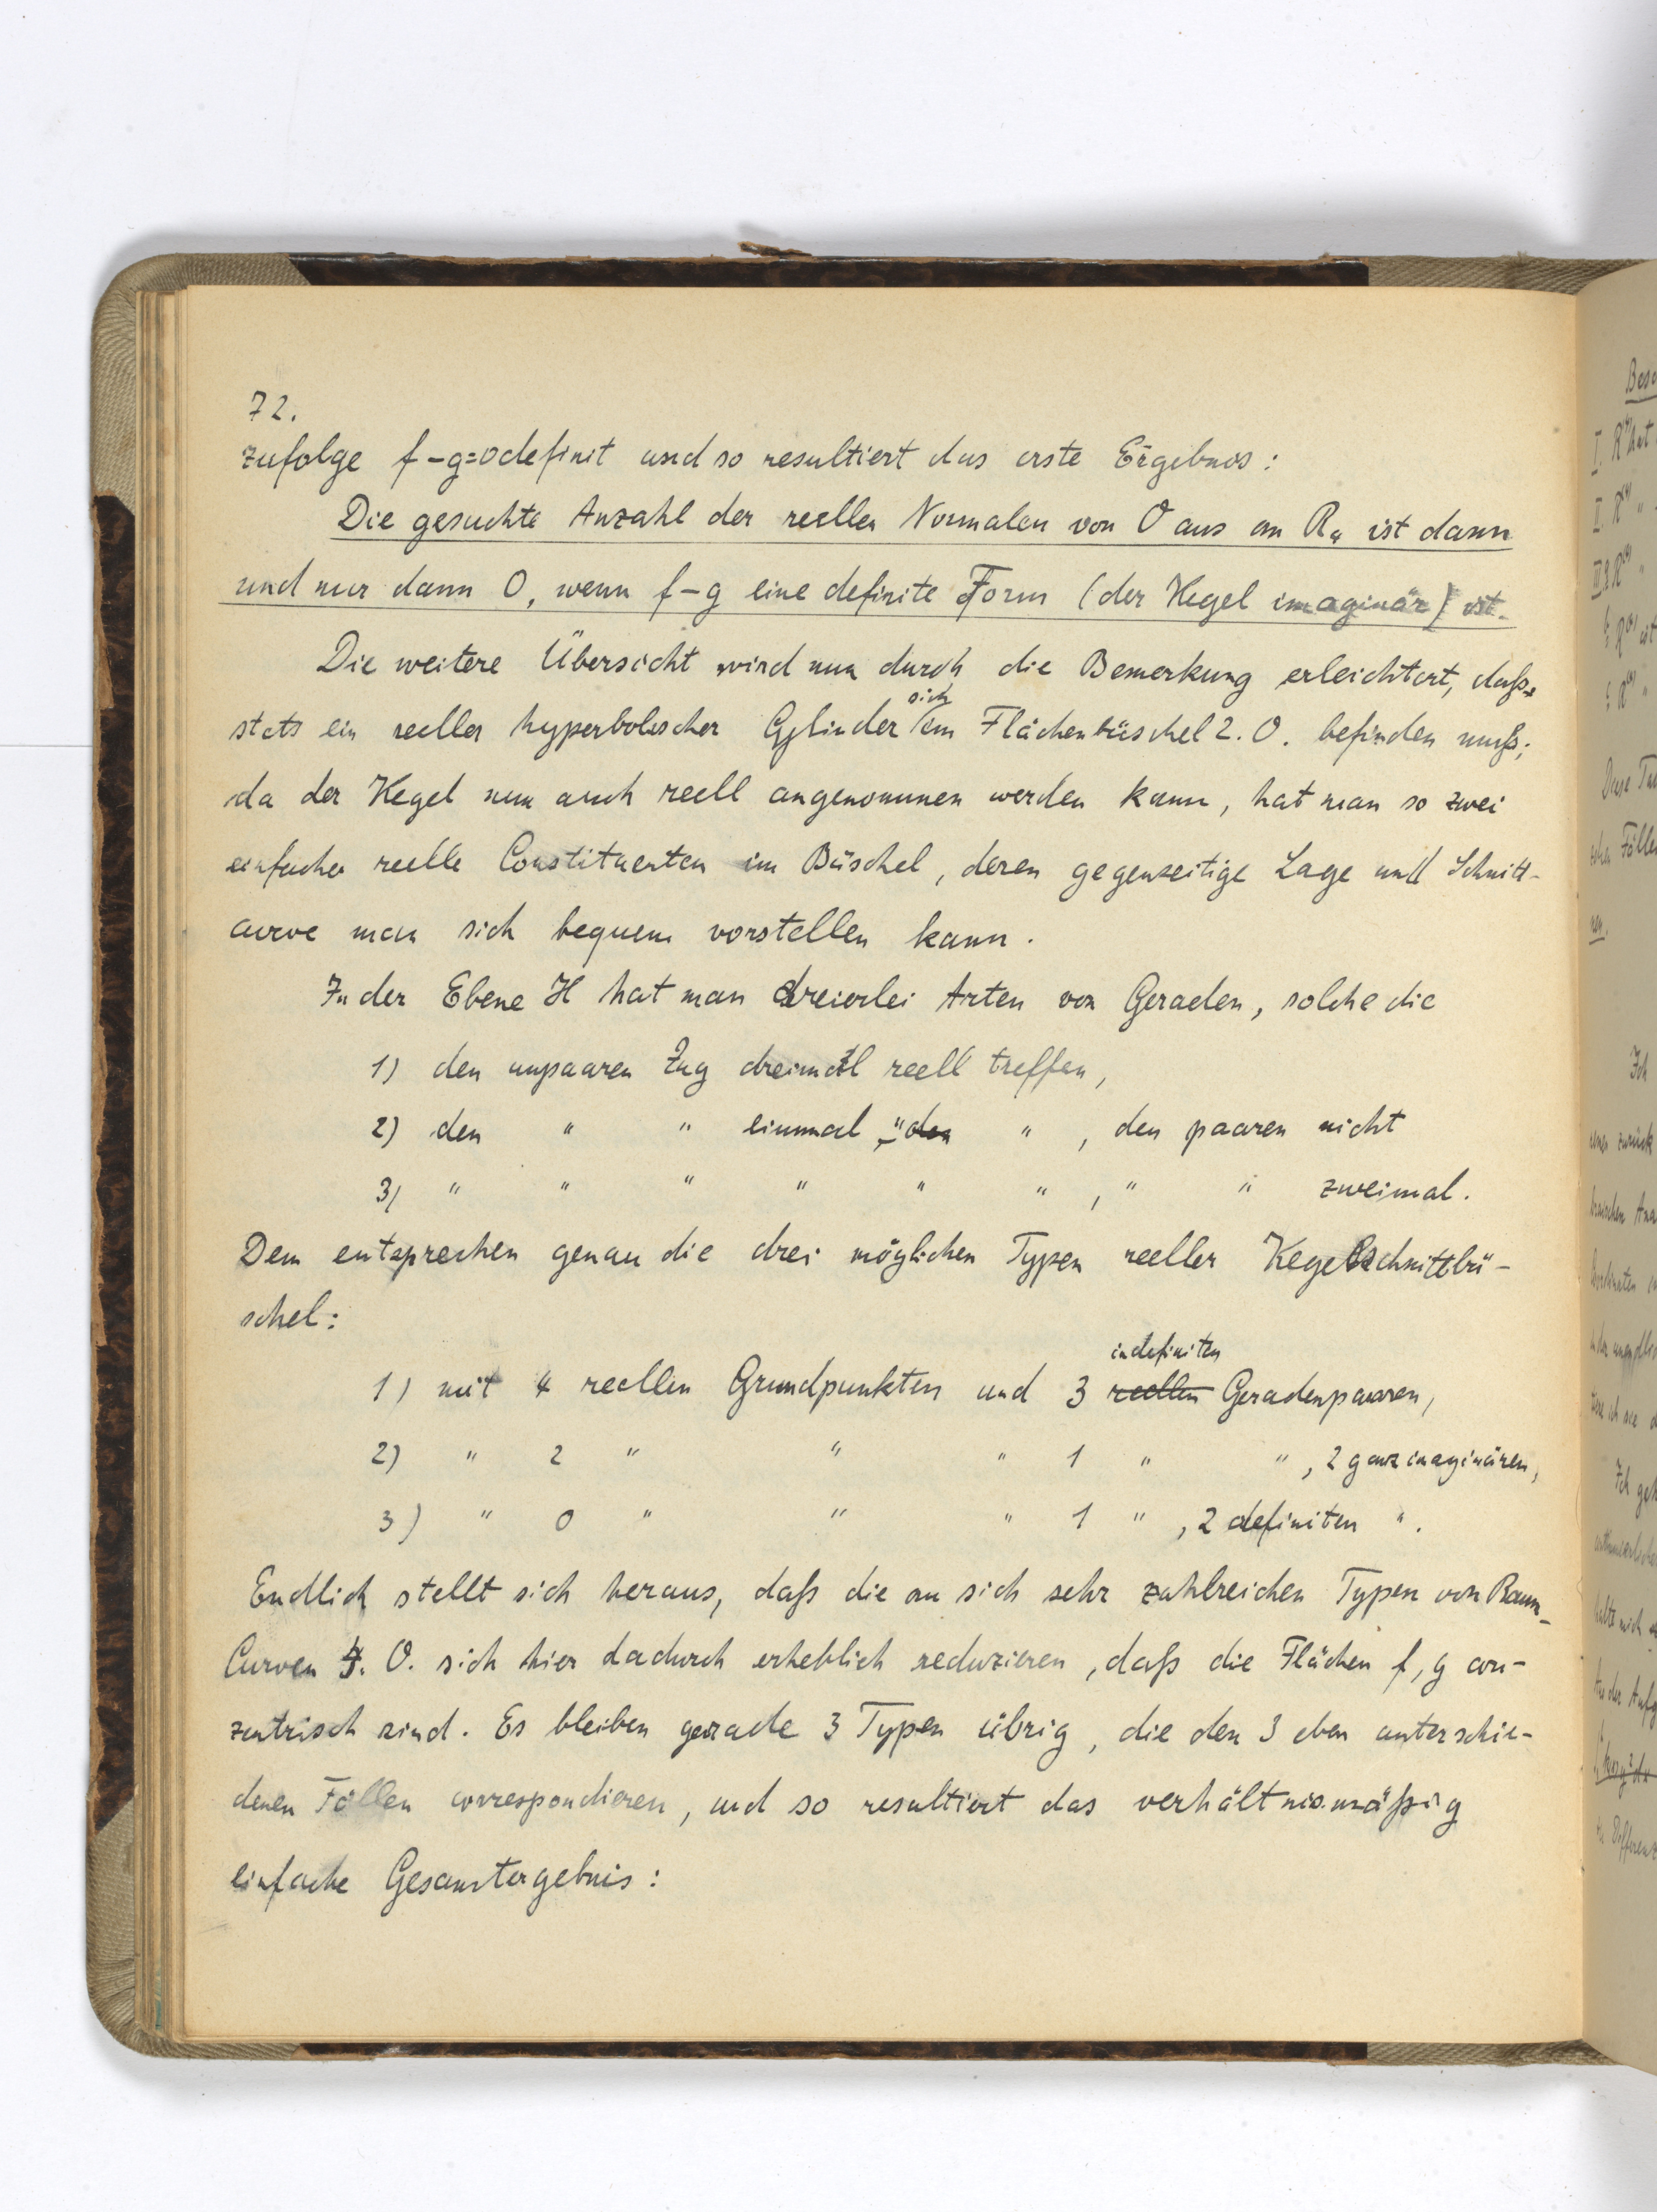 72.
zufolge f-g=0 definit und so resultiert das erste Ergebnis:
Die gesuchte Anzahl der reellen Normalen von O aus an R₄ ist dann
und nur dann 0, wenn f-g eine definite Form (der Kegel imaginär) ist.
Die weitere Übersicht wird nun durch die Bemerkung erleichtert, daß
sich
stets ein reeller hyperbolischer Cylinder im Flächenbüschel 2. O. befinden muß;
da der Kegel nun auch reell angenommen werden kann, hat man so zwei
einfache reelle Constituenten im Büschel, deren gegenseitige Lage und Schnitt-
curve man sich bequem vorstellen kann.
In der Ebene H hat man dreierlei Arten von Geraden, solche die
1) den unpaaren Zug dreimal reell treffen,
2) den " " einmal " den " , den paaren nicht
3) " " " " " " , " " zweimal.
Dem entsprechen genau die drei möglichen Typen reeller Kegelschnittbü-
schel:
indefiniten
1) mit 4 reellen Grundpunkten und 3 reellen Geradenpaaren,
2) " 2 " " " 1 " " , 2 ganz imaginären,
3) " 0 " " " 1 " , 2 definiten " .
Endlich stellt sich heraus, daß die an sich sehr zahlreichen Typen von Raum-
Curven 4. O. sich hier dadurch erheblich reduzieren, daß die Flächen f, g con-
zentrisch sind. Es bleiben gerade 3 Typen übrig, die den 3 eben unterschie-
denen Fällen correspondieren, und so resultiert das verhältnismäßig
einfache Gesamtergebnis: